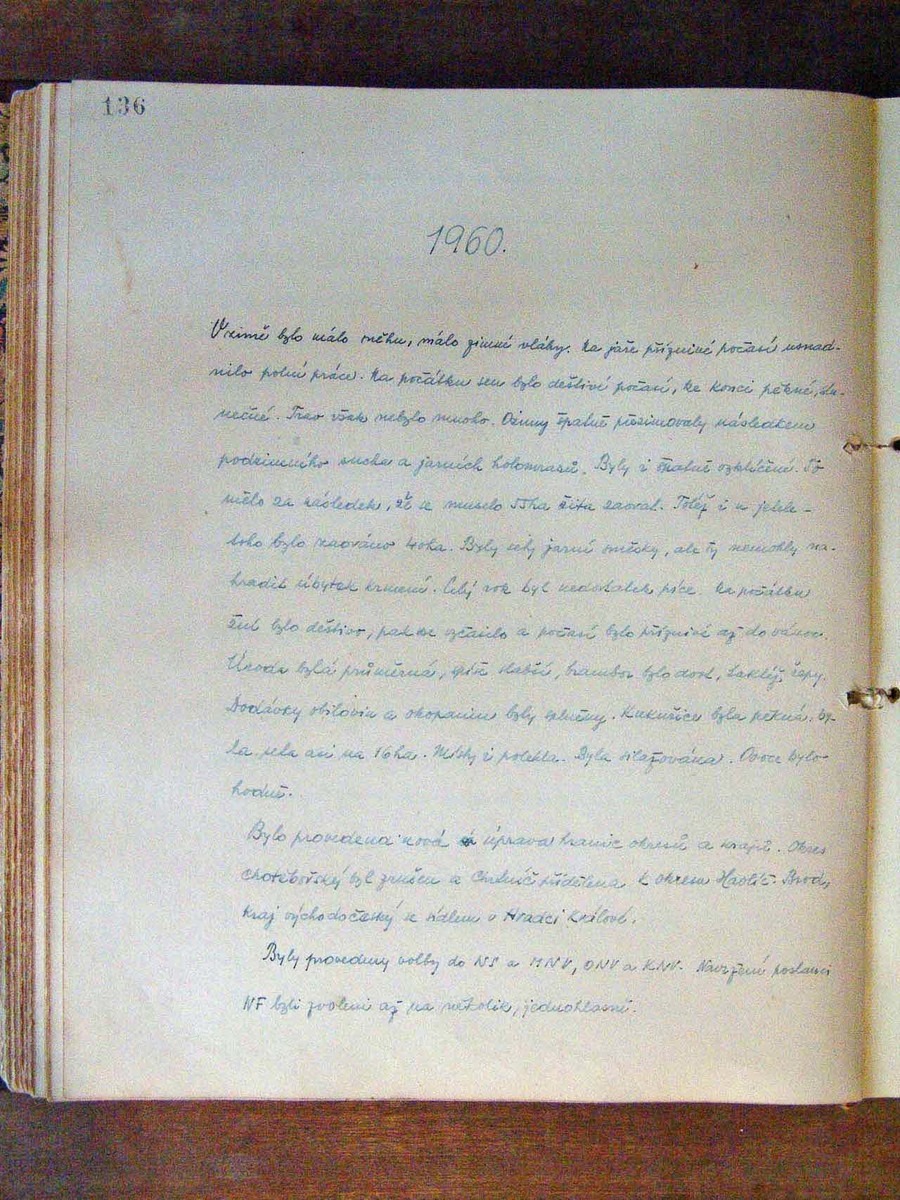 136
1960.
V zimě bylo málo sněhu, málo zimné vláhy. Na jaře příznivé počasí usnad-
nilo polní práce. Na počátku sen bylo deštivé počasí, ke konci pěkné, slu-
nečné. Trav však nebylo mnoho. Ozimy špatně přezimovaly následkem
podzimního sucha a jarních holomrazů. Byly i špatně vzklíčené. To
mělo za následek, že se muselo 55ha žita zaorat. Totéž i u jetele-
toho bylo zaoráno 40ha. Byly sety jarní směsky, ale ty nemohly na-
hradit úbytek krmení. Celý rok byl nedostatek píce. Na počátku
žní bylo deštivo, pak se vyčasilo a počasí bylo příznivé až do vánoc.
Úroda byla průměrná, spíš slabší, brambor bylo dost, taktéž řepy.
Dodávky obilovin a okopanin byly splněny. Kukuřice byla pěkná, by-
la seta asi na 16ha. Místy i polehla. Byla silážována. Ovoce bylo
hodně.
Bylo provedena nová úprava hranic okresů a krajů. Okres
chotěbořský byl zrušen a přidělena k okresu Havlíč. Brod,
kraj východočeský se sídlem v Hradci Králové.
Byly provedeny volby do NS a MNV, ONV a KNV. Navržení poslanci
NF byli zvoleni až na několik, jednohlasně.